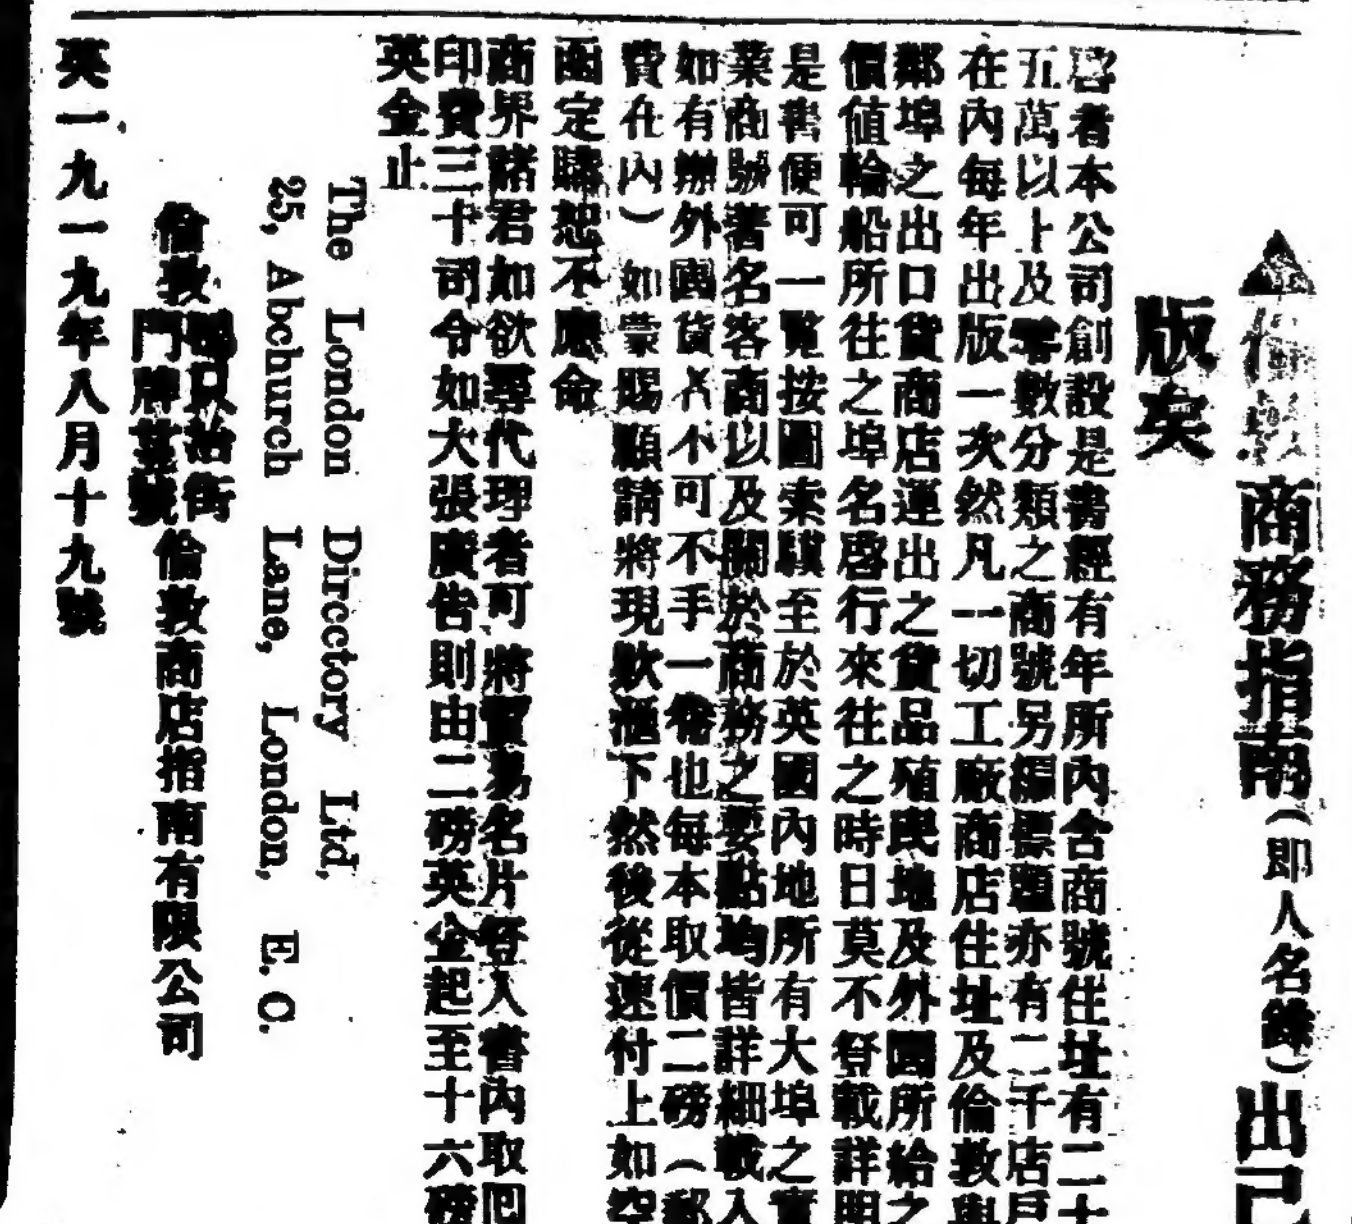 商務指南(即人名錄)出已
版矣
啓者本公司創設是書經有年所內含商號住址有二十
五萬以上及零數分類之商號另編標題亦有二千店戶
在內每年出版一次然凡一切工廠商店住址及倫敦與
鄰埠之出口貨商店運出之貨品殖民地及外國所給之
價值輪船所往之埠名啓行來往之時日莫不登載詳明
是書便可一覽按圖索驥至於英國內地所有大埠之實
業商號著名客商以及關於商務之要點均皆詳細載入
如有辦外國貨者不可不手一備也每本取價二磅(郵
費在內)如蒙賜顧請將現欵滙下然後從速付上如空
函定購恕不應命
商界諸君如欲尋代理者可將貿易名片登入書內取回
印費三十司令如大張廣告則由二磅英金起至十六磅
英金止
The London Directory Ltd,
25, Abchurch Lane, London, E. C.
倫敦 街門牌 號倫敦商店指南有限公司
英一九一九年八月十九號